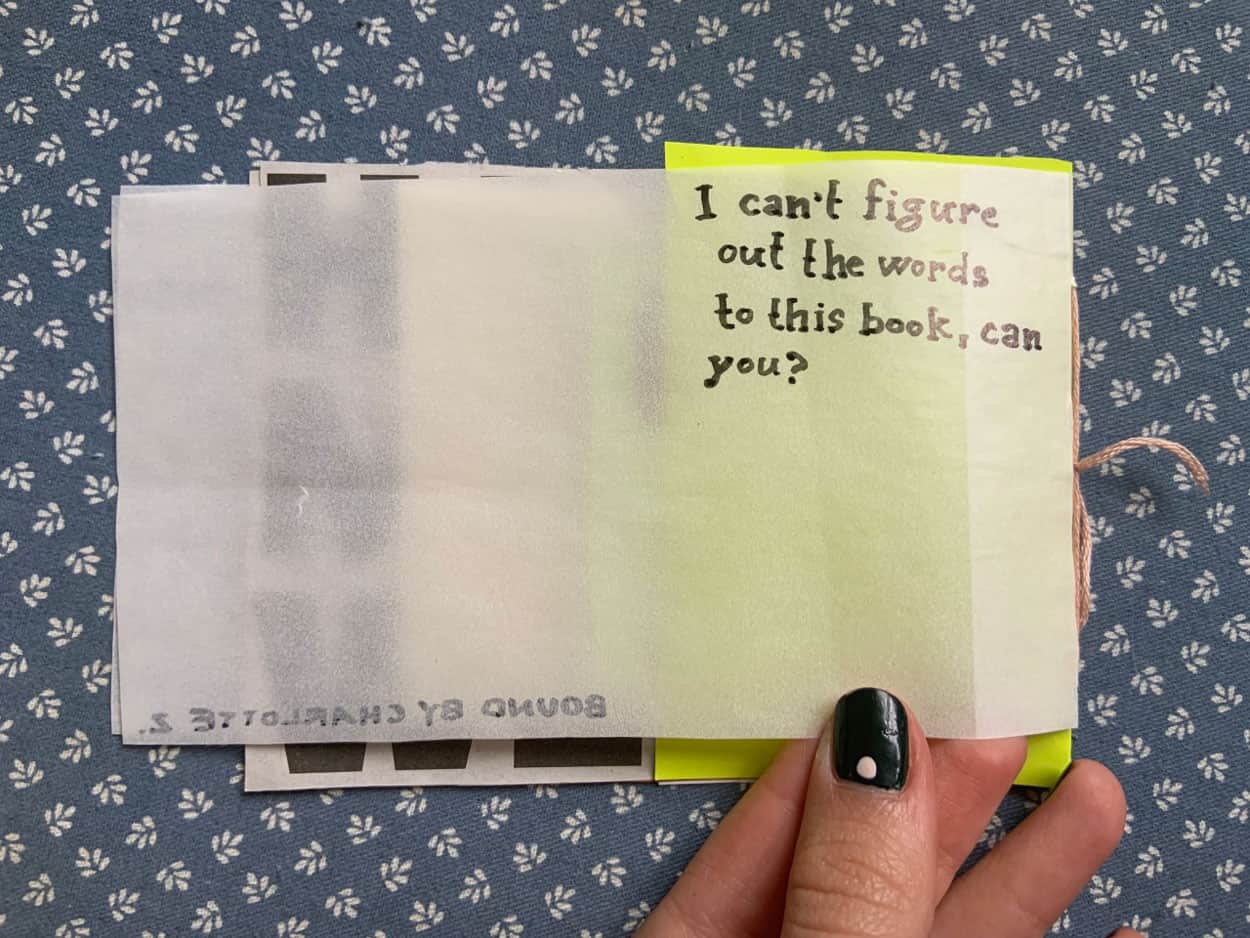 I can't figure
out the words
to this book, can
you?
BOUND BY CHARLOTTE Z.